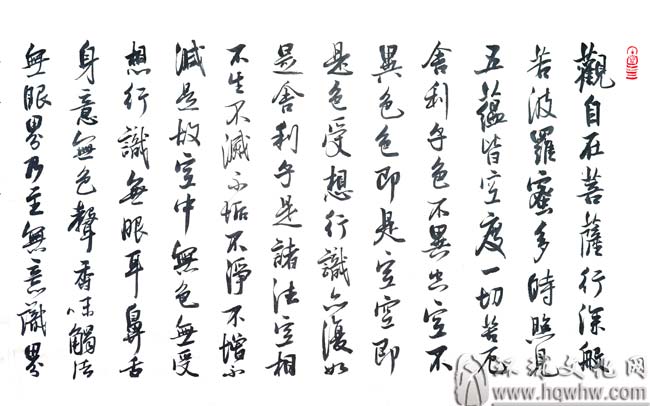 觀自在菩薩行深般
若波羅蜜多時照見
五蘊皆空度一切苦厄
舍利子色不異空空不
異色色即是空空即
是色受想行識亦復如
是舍利子是諸法空相
不生不滅不垢不淨不增不
減是故空中無色無受
想行識無眼耳鼻舌
身意無色聲香味觸法
無眼界乃至無意識界
环球文化网
www.hqwhw.com